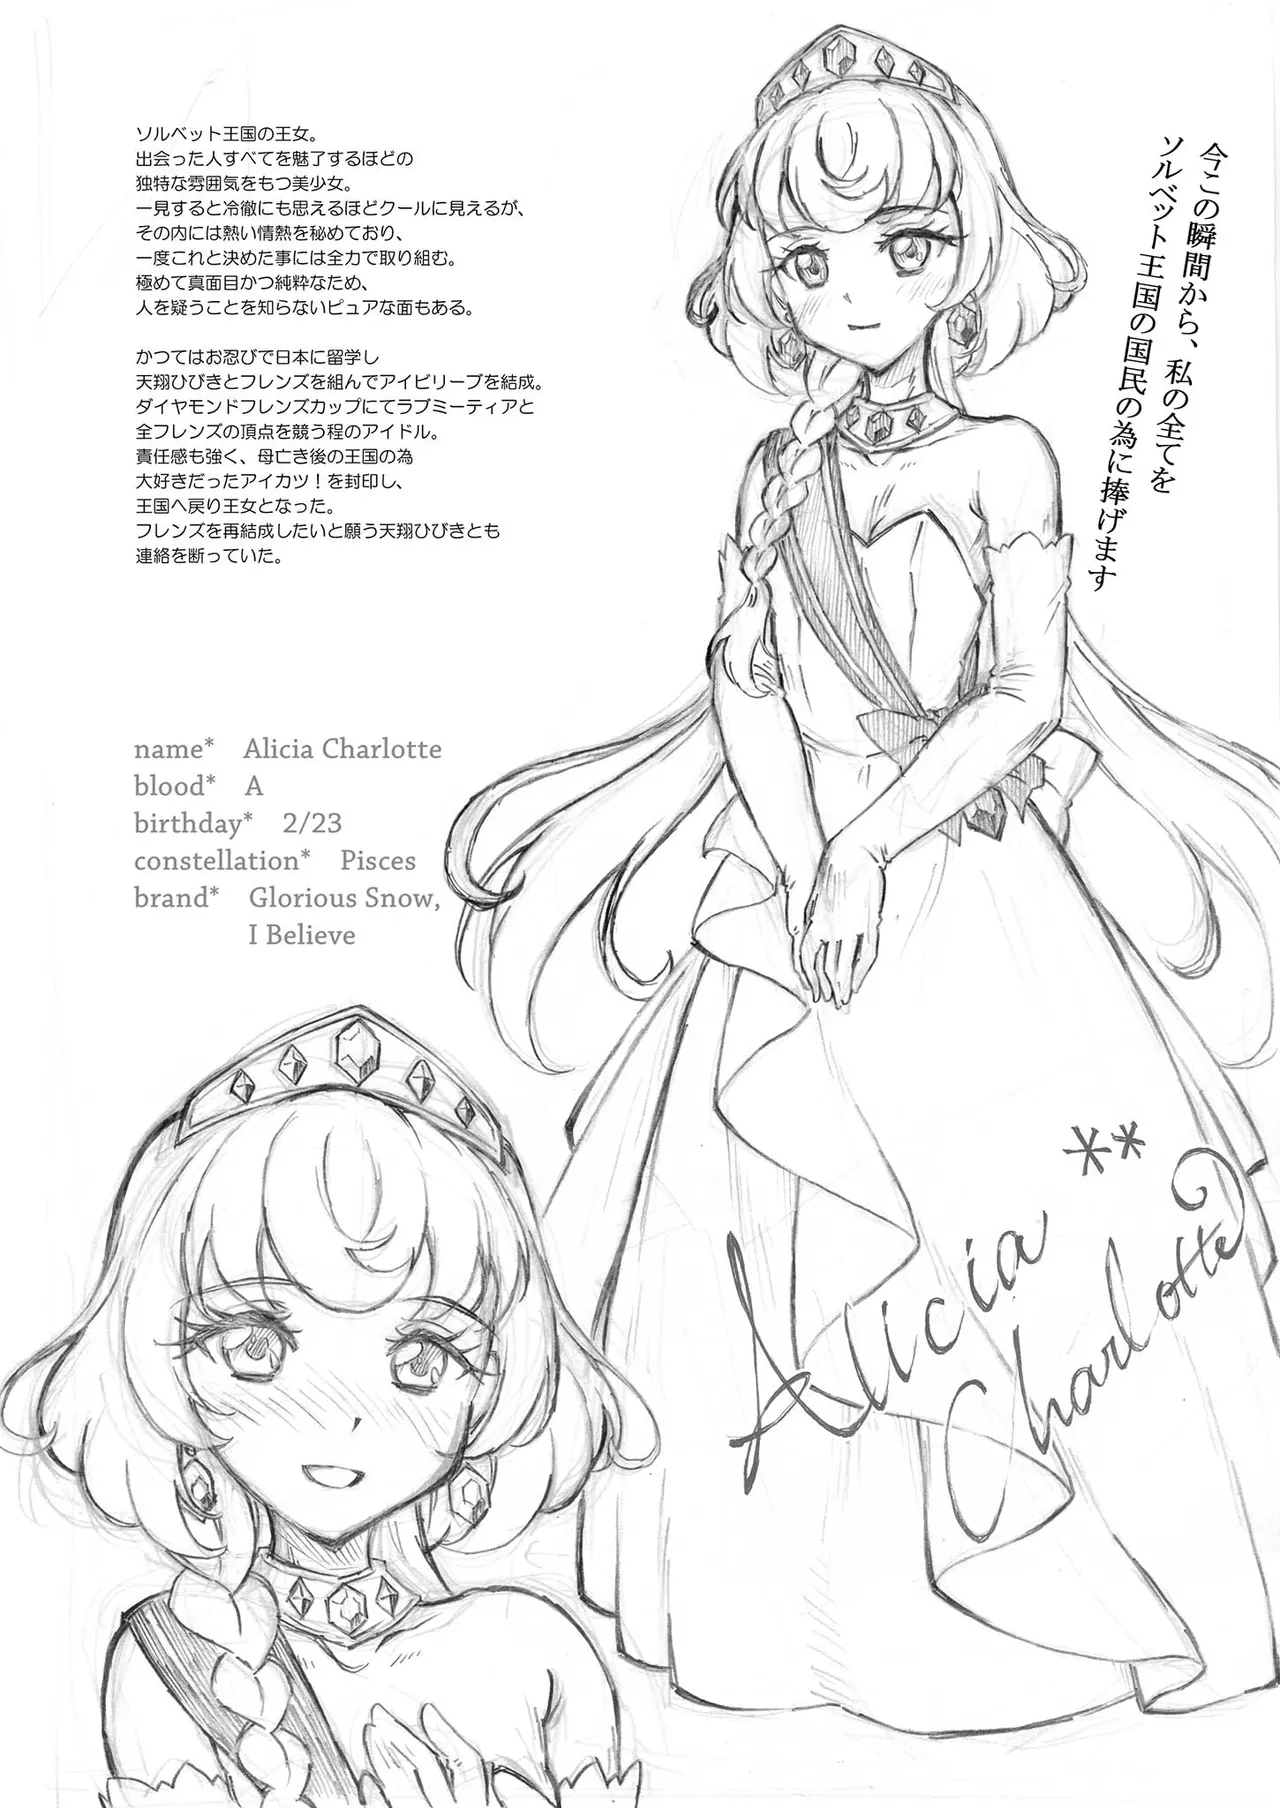 ソルベット王国の王女。
出会った人すべてを魅了するほどの
独特な雰囲気をもつ美少女。
一見すると冷徹にも思えるほどクールに見えるが、
その内には熱い情熱を秘めており、
一度これと決めた事には全力で取り組む。
極めて真面目かつ純粋なため、
人を疑うことを知らないピュアな面もある。
かつてはお忍びで日本に留学し
天翔ひびきとフレンズを組んでアイビリーブを結成。
ダイヤモンドフレンズカップにてラブミーティアと
全フレンズの頂点を競う程のアイドル。
責任感も強く、母亡き後の王国の為
大好きだったアイカツ！を封印し、
王国へ戻り王女となった。
フレンズを再結成したいと願う天翔ひびきとも
連絡を断っていた。
今この瞬間から、私の全てを
ソルベット王国の国民の為に捧げます
name* Alicia Charlotte
blood* A
birthday* 2/23
constellation* Pisces
brand* Glorious Snow,
I Believe
**
Alicia
Charlotte